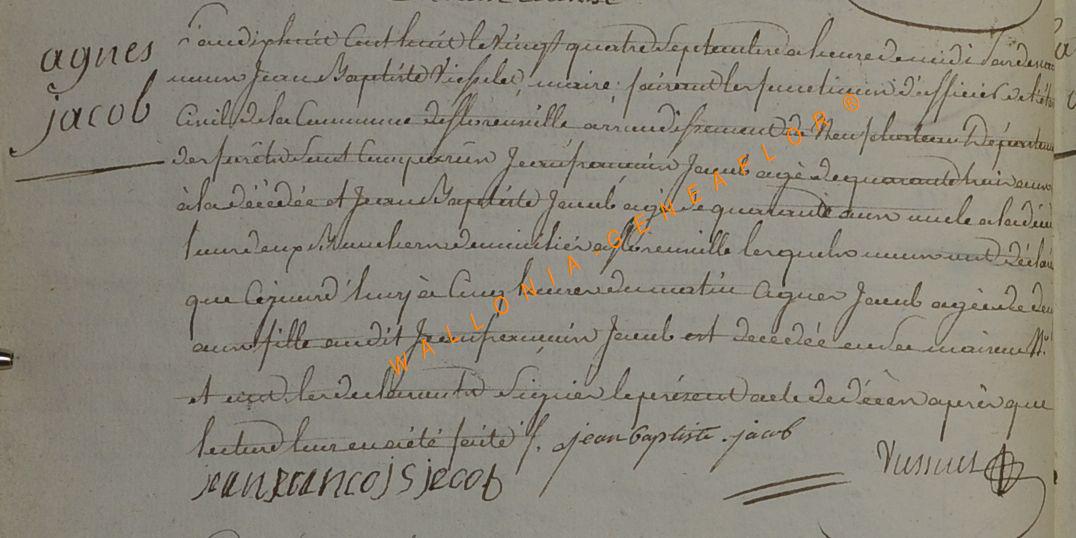 agnes
jacob
l'an dix huit cent huit le vingt quatre septembre a heure de midi par devant
nous Jean Baptiste maire faisant les fonctions d'officier de l'état
Civil de la Commune de florenville arrondissement de Neufchateau Département
des forêts sont comparus Jean françois Jacob agé de quarante huit ans
à la décédée et Jean Baptiste Jacob agé de quarante ans oncle a la
tous deux de metier a florenville lesquels nous ont déclaré
que cejourd'huy à Cinq heures du matin agnes Jacob agée de
ans fille audit Jean françois Jacob est décédée en sa maison
et ont les declarants signés le présent acte de décès après que
lecture leur en a été faite /. jean baptiste . jacob
jeanfrancois jacob
WALLONIA-GENEAFLOR ®